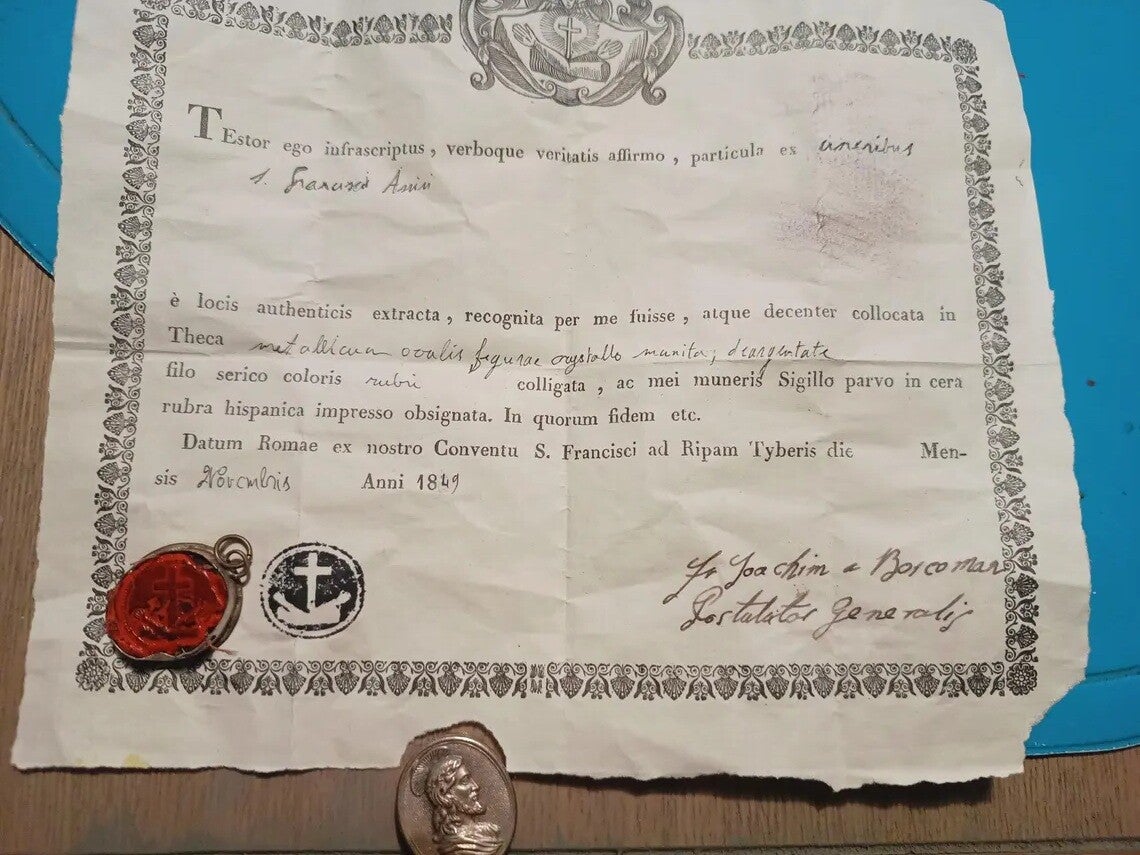 TEstor ego infrascriptus, verboque veritatis affirmo, particula ex cineribus
s. Francisci Assisi
è locis authenticis extracta, recognita per me fuisse, atque decenter collocata in
Theca metallicam ovalis figurae crystallo munita, deargentata
filo serico coloris rubri colligata, ac mei muneris Sigillo parvo in cera
rubra hispanica impresso obsignata. In quorum fidem etc.
Datum Romae ex nostro Conventu S. Francisci ad Ripam Tyberis die Men-
sis Novembris Anni 1849
Fr Joachim a
Postulator Generalis